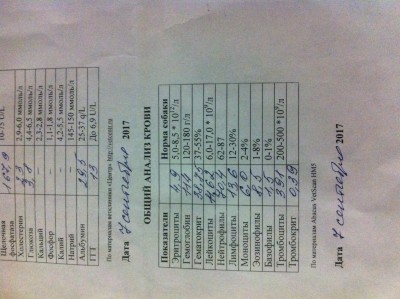 Щелочная фосфатаза 167,9
Холестерин 2,9-6,0 ммоль/л
Глюкоза 3,8 4,4-6,5 ммоль/л
Кальций 2,3-2,8 ммоль/л
Фосфор 1,1-1,8 ммоль/л
Калий 4,2-5,5 ммоль/л
Натрий 145-150 ммоль/л
Альбумин 29,5 25-37 q/L
ГГТ 13 До 6,9 U/L
По материалам ветклиники «Центр» http://vetcentr.ru
Дата 7 сентября 2017
ОБЩИЙ АНАЛИЗ КРОВИ
Показатели Норма собаки
Эритроциты 4,9 5,0-8,5 * 10¹²/л
Гемоглобин 120-180 г/л
Гематокрит 37-55%
Лейкоциты 6,0-17,0 * 10⁹/л
Нейтрофилы 70,4 62-87
Лимфоциты 13,6 12-30%
Моноциты 6,0 2-4%
Эозинофилы 8,5 1-8%
Базофилы 1,5 0-1%
Тромбоциты 391 200-500 *10⁹/л
Тромбокрит 0,39
По материалам Abacus VetScan HM5
Дата 7 сентября 2017